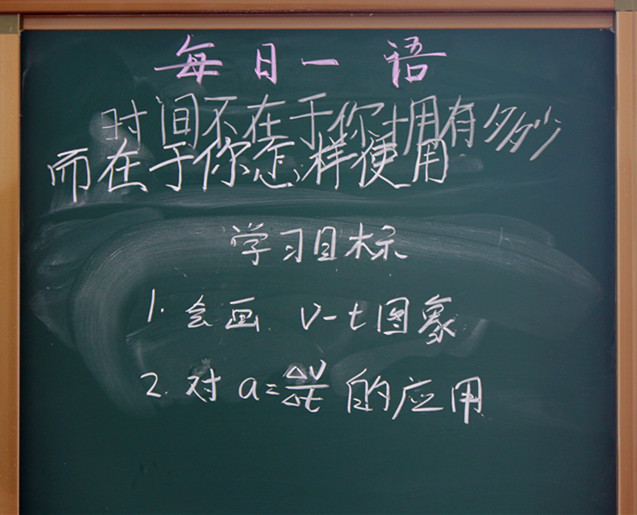 每日一语
时间不在于你拥有多少
而在于你怎样使用
学习目标
1. 会画 v-t图象
2. 对 a=Δv/Δt 的应用